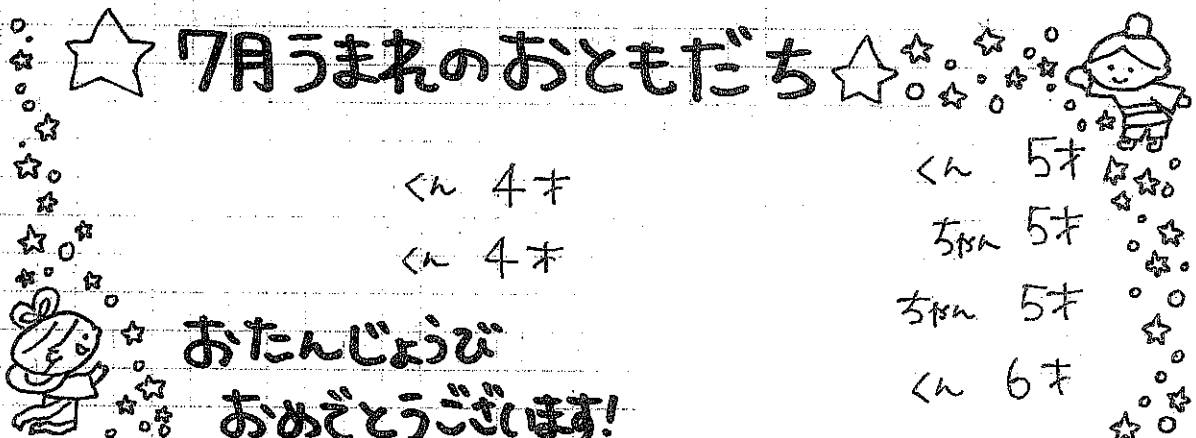 ☆7月うまれのおともだち☆
くん 4才
くん 4才
くん 5才
ちゃん 5才
ちゃん 5才
くん 6才
おたんじょうび
おめでとうございます!